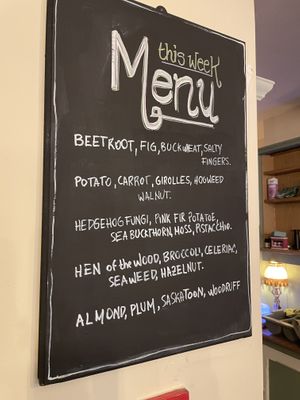 this week
Menu
BEETROOT, FIG, BUCKWEAT, SALTY
FINGERS.
POTATO, CARROT, GIROLLES, HOGWEED
WALNUT.
HEDGEHOG FUNGI, PINK FIR POTATOE,
SEA BUCKTHORN, MOSS, PISTACCHIO.
HEN of the WOOD, BROCCOLI, CELERIAC,
SEAWEED, HAZELNUT.
ALMOND, PLUM, SASKATOON, WOODRUFF